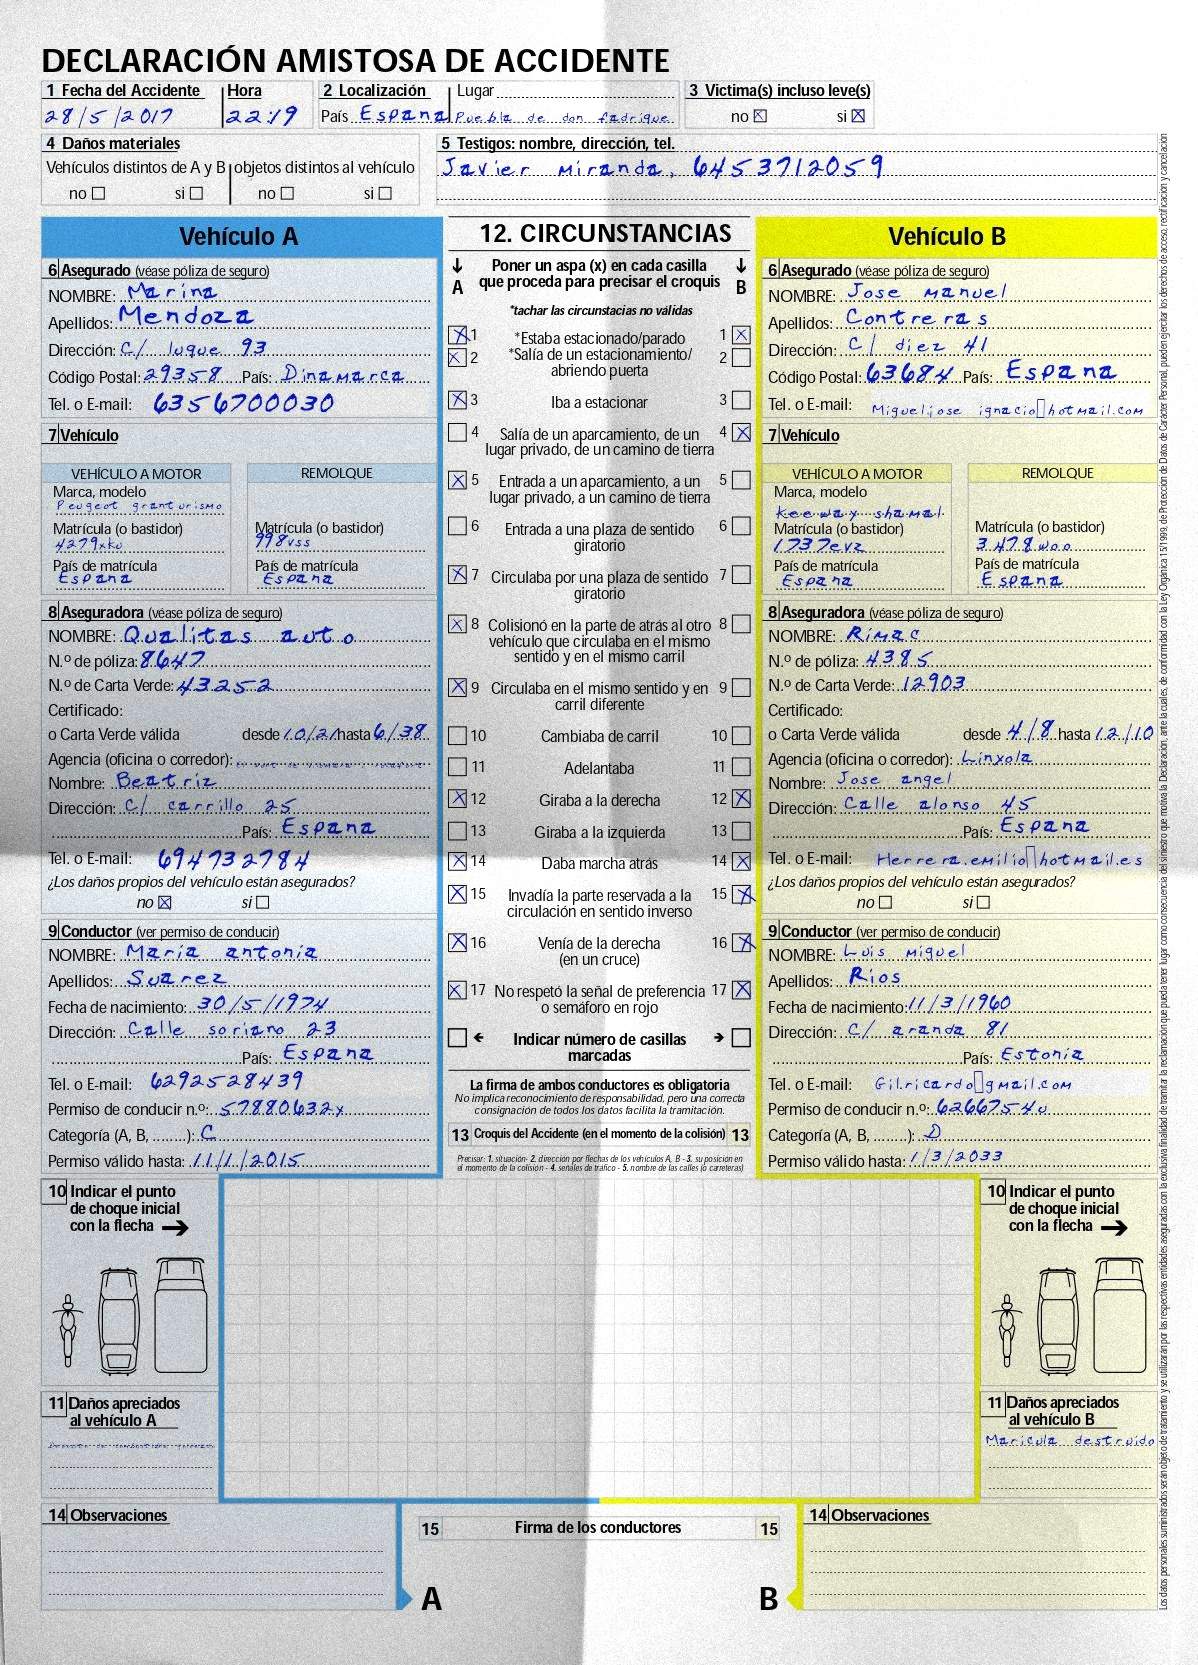 DECLARACIÓN AMISTOSA DE ACCIDENTE
1 Fecha del Accidente Hora 2 Localización Lugar 3 Victima(s) incluso leve(s)
28/5/2017 22:19 País Espana Puebla de don fadrique no si
4 Daños materiales 5 Testigos: nombre, dirección, tel.
Vehículos distintos de A y B objetos distintos al vehículo Javier Miranda, 6453712059
no si no si
Vehículo A
6 Asegurado (véase póliza de seguro)
NOMBRE: Marina
Apellidos: Mendoza
Dirección: C/ luque 93
Código Postal: 29358 País: Dinamarca
Tel. o E-mail: 6356700030
7 Vehículo
VEHÍCULO A MOTOR REMOLQUE
Marca, modelo
Peugeot granturismo
Matrícula (o bastidor) Matrícula (o bastidor)
4279xku 998vss
País de matrícula País de matrícula
Espana Espana
8 Aseguradora (véase póliza de seguro)
NOMBRE: Qualitas auto
N.º de póliza: 8647
N.º de Carta Verde: 43252
Certificado:
o Carta Verde válida desde 10/21 hasta 6/38
Agencia (oficina o corredor):
Nombre: Beatriz
Dirección: C/ carrillo 25
País: Espana
Tel. o E-mail: 694732784
¿Los daños propios del vehículo están asegurados?
no si
9 Conductor (ver permiso de conducir)
NOMBRE: María antonia
Apellidos: Suarez
Fecha de nacimiento: 30/5/1974
Dirección: Calle soriano 23
País: Espana
Tel. o E-mail: 6292528439
Permiso de conducir n.º: 57880632x
Categoría (A, B, ........): C
Permiso válido hasta: 11/1/2015
12. CIRCUNSTANCIAS
A Poner un aspa (x) en cada casilla que proceda para precisar el croquis B
*tachar las circunstacias no válidas
1 *Estaba estacionado/parado 1
2 *Salía de un estacionamiento/ 2
abriendo puerta
3 Iba a estacionar 3
4 Salía de un aparcamiento, de un 4
lugar privado, de un camino de tierra
5 Entrada a un aparcamiento, a un 5
lugar privado, a un camino de tierra
6 Entrada a una plaza de sentido 6
giratorio
7 Circulaba por una plaza de sentido 7
giratorio
8 Colisionó en la parte de atrás al otro 8
vehículo que circulaba en el mismo
sentido y en el mismo carril
9 Circulaba en el mismo sentido y en 9
carril diferente
10 Cambiaba de carril 10
11 Adelantaba 11
12 Giraba a la derecha 12
13 Giraba a la izquierda 13
14 Daba marcha atrás 14
15 Invadía la parte reservada a la 15
circulación en sentido inverso
16 Venía de la derecha 16
(en un cruce)
17 No respetó la señal de preferencia 17
o semáforo en rojo
Indicar número de casillas
marcadas
La firma de ambos conductores es obligatoria
No implica reconocimiento de responsabilidad, pero una correcta
consignación de todos los datos facilita la tramitación.
13 Croquis del Accidente (en el momento de la colisión) 13
Precisar: 1. situación- 2. dirección por flechas de los vehículos A, B - 3. su posición en
el momento de la colisión - 4. señales de tráfico - 5. nombre de las calles (o carreteras)
Vehículo B
6 Asegurado (véase póliza de seguro)
NOMBRE: Jose manuel
Apellidos: Contreras
Dirección: C/ diez 41
Código Postal: 63684 País: Espana
Tel. o E-mail: Migueljose ignacio hotmail.com
7 Vehículo
VEHÍCULO A MOTOR REMOLQUE
Marca, modelo
keeway shamal
Matrícula (o bastidor) Matrícula (o bastidor)
1737evz 3478woo
País de matrícula País de matrícula
Espana Espana
8 Aseguradora (véase póliza de seguro)
NOMBRE: Rimac
N.º de póliza: 4385
N.º de Carta Verde: 12903
Certificado:
o Carta Verde válida desde 4/8 hasta 12/10
Agencia (oficina o corredor): Linxola
Nombre: Jose angel
Dirección: Calle alonso 45
País: Espana
Tel. o E-mail: Herrera.emilio hotmail.es
¿Los daños propios del vehículo están asegurados?
no si
9 Conductor (ver permiso de conducir)
NOMBRE: Luis miguel
Apellidos: Rios
Fecha de nacimiento: 11/3/1960
Dirección: C/ aranda 81
País: Estonia
Tel. o E-mail: Gilricardo gmail.com
Permiso de conducir n.º: 6266754u
Categoría (A, B, ........): D
Permiso válido hasta: 1/3/2033
10 Indicar el punto
de choque inicial
con la flecha
11 Daños apreciados
al vehículo A
10 Indicar el punto
de choque inicial
con la flecha
11 Daños apreciados
al vehículo B
Maricula destruido
14 Observaciones
15 Firma de los conductores 15
A B
14 Observaciones
Los datos personales suministrados serán objeto de tratamiento y se utilizarán por las respectivas entidades aseguradas con la exclusiva finalidad de tramitar la reclamación que pueda tener lugar como consecuencia del siniestro que motiva la Declaración, ante la cuales, de conformidad con la Ley Orgánica 15/1999, de Protección de Datos de Carácter Personal, pueden ejercitar los derechos de acceso, rectificación y cancelación